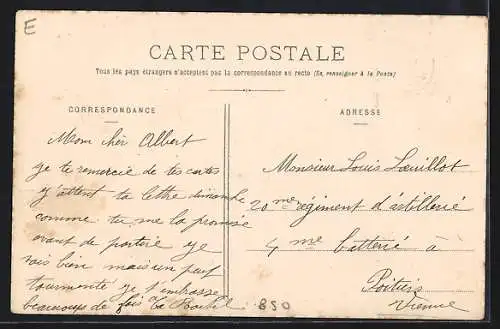 E
CARTE POSTALE
Tous les pays étrangers n'acceptent pas la correspondance au recto (Se renseigner à la Poste)
CORRESPONDANCE
Mon chèr Albert
je te remercie de tes cartes
j'attent ta lettre dimanche
comme tu me la promise
avant de partire je
vais bien mais un peut
tourmonté je t'embrasse
beaucoups de fois Ta
ADRESSE
Monsieur Louis Leuillot
20 me régiment d'artillerié
4 me batterié à
Poitiers
Vienne
850